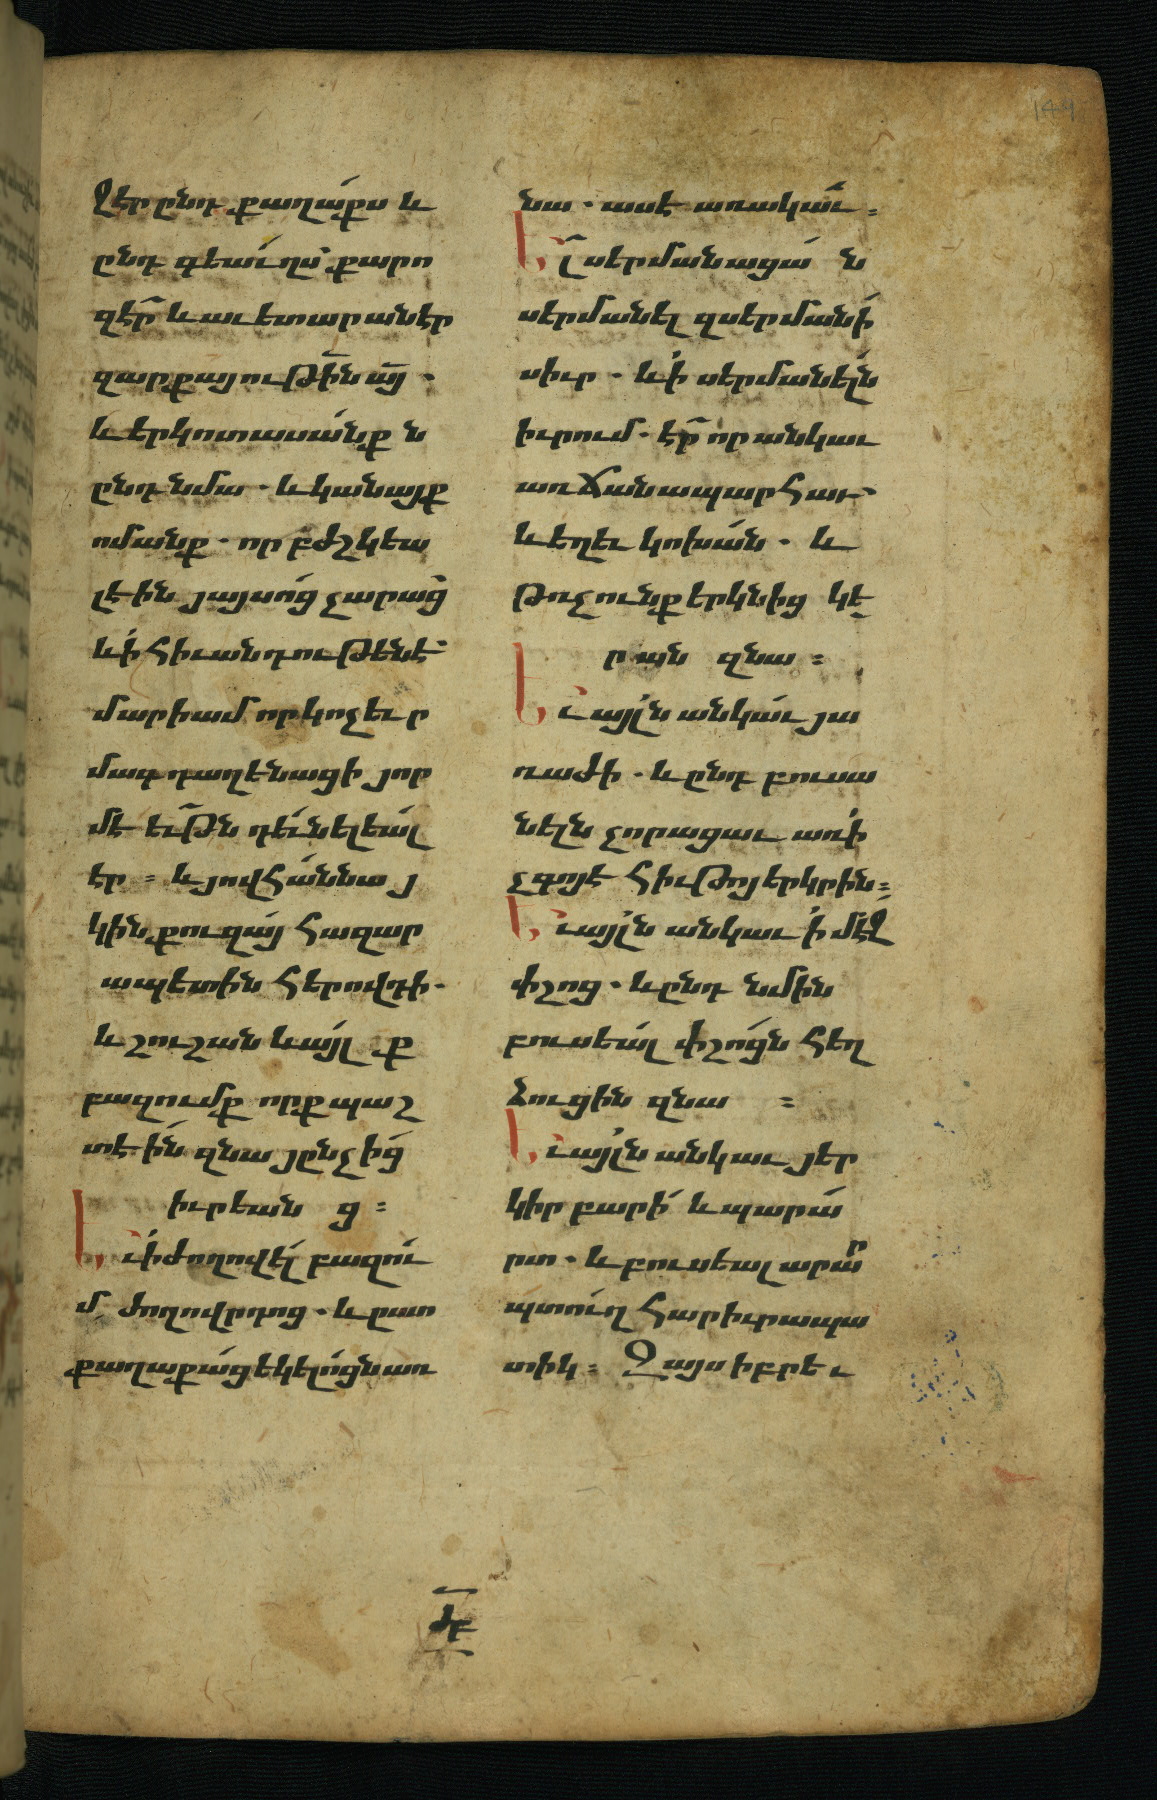 144
ջէր ընդ քաղաքս և
ընդ գեաւղս քարո
զէր և աւետարանէր
զարքայութին այ ․
և երկոտասանքն
ընդ նմա ․ և կանայք
ոմանք ․ որ բժշկեա
լէին յայսոց չարաց
և ի հիւանդութենէ ․
մարիամ որ կոչեւր
մագդաղենացի յոր
մէ եւթն դեւն ելեալ
էր ։ և յովհաննա յ
կին քուզայ հազար
ապետին հերովդի ․
և շուշան և այլք
բազումք որք պաշ
տէին զնա յընչից
իւրեանց ։
Եւ ի ժողովել բազու
մ ժողովրդոց ․ և ըստ
քաղաքաց եկելոցն առ
նա ․ ասէ առակաւ ։
Ել սերմանացան
սերմանել զսերմանի
սիւր ․ և ի սերմանելն
իւրում ․ էր որ անկաւ
առ ճանապարհաւ ․
և եղեւ կոխան ․ և
թռչունք երկնից կե
րան զնա ։
Եւ այլն անկաւ յա
ռաժի ․ և ընդ բուսա
նելն չորացաւ առ ի
չգոյէ հիւթոյ երկրին ։
Եւ այլն անկաւ ի մէջ
փշոց ․ և ընդ նմին
բուսեալ փշոցն հեղ
ձուցին զնա ։
Եւ այլն անկաւ յեր
կիր բարի և պարա
րտ ․ և բուսեալ արար
պտուղ հարիւրապա
տիկ ։ Զայս իբրեւ
ժբ